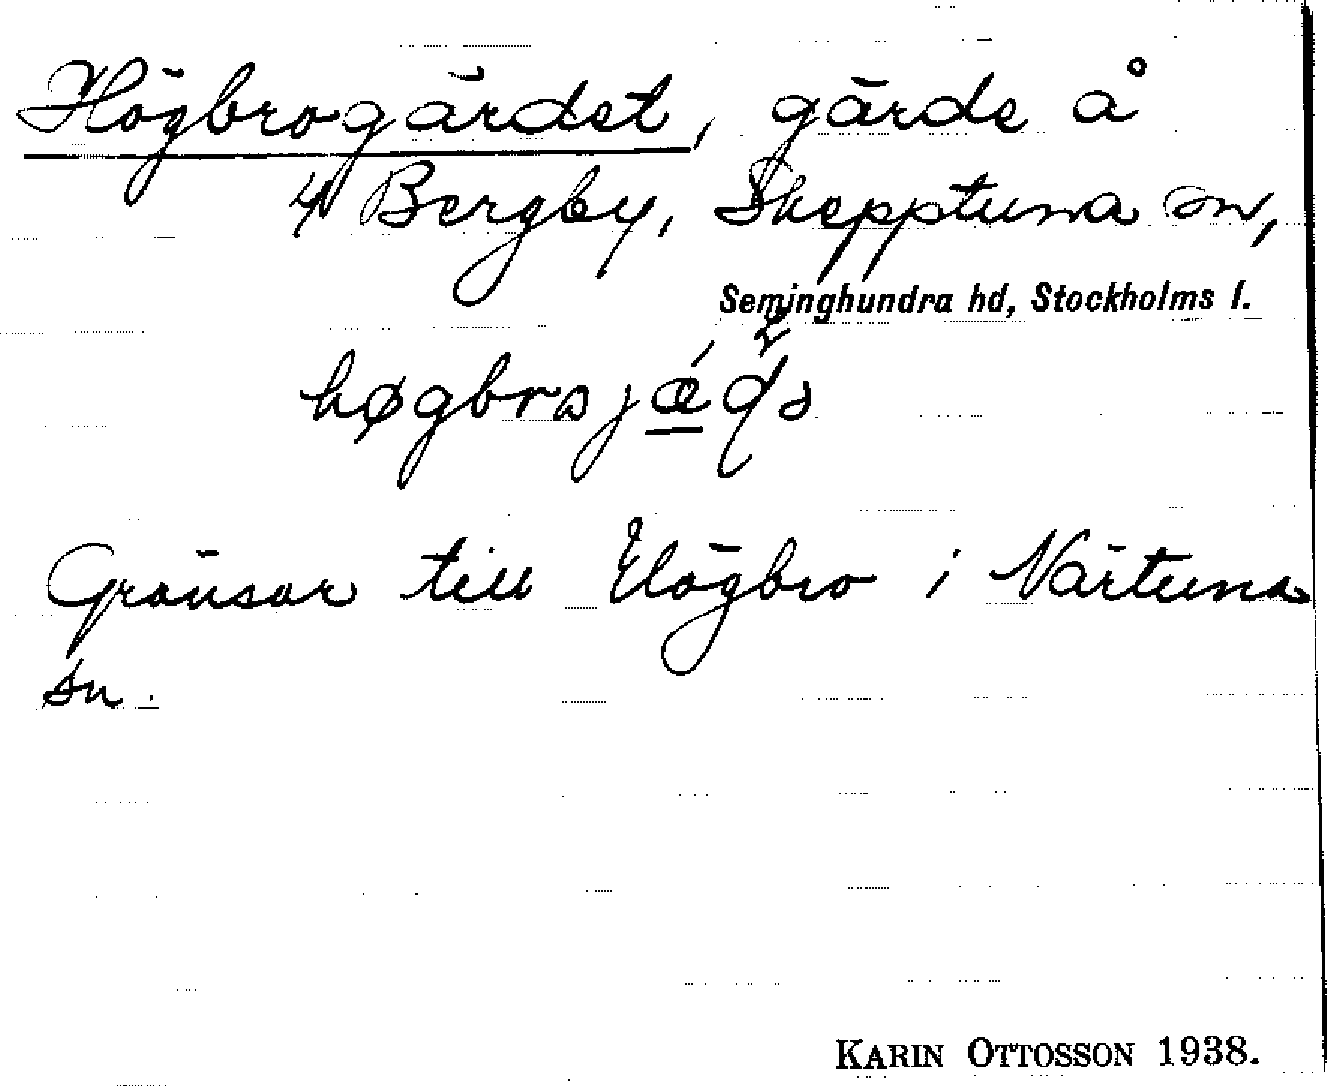 Högbrogärdet, gärde å
4 Bergby, Skepptuna sn,
Seminghundra hd, Stockholms l.
Gränsar till Högbro i Närtuna
sn.
KARIN OTTOSSON 1938.